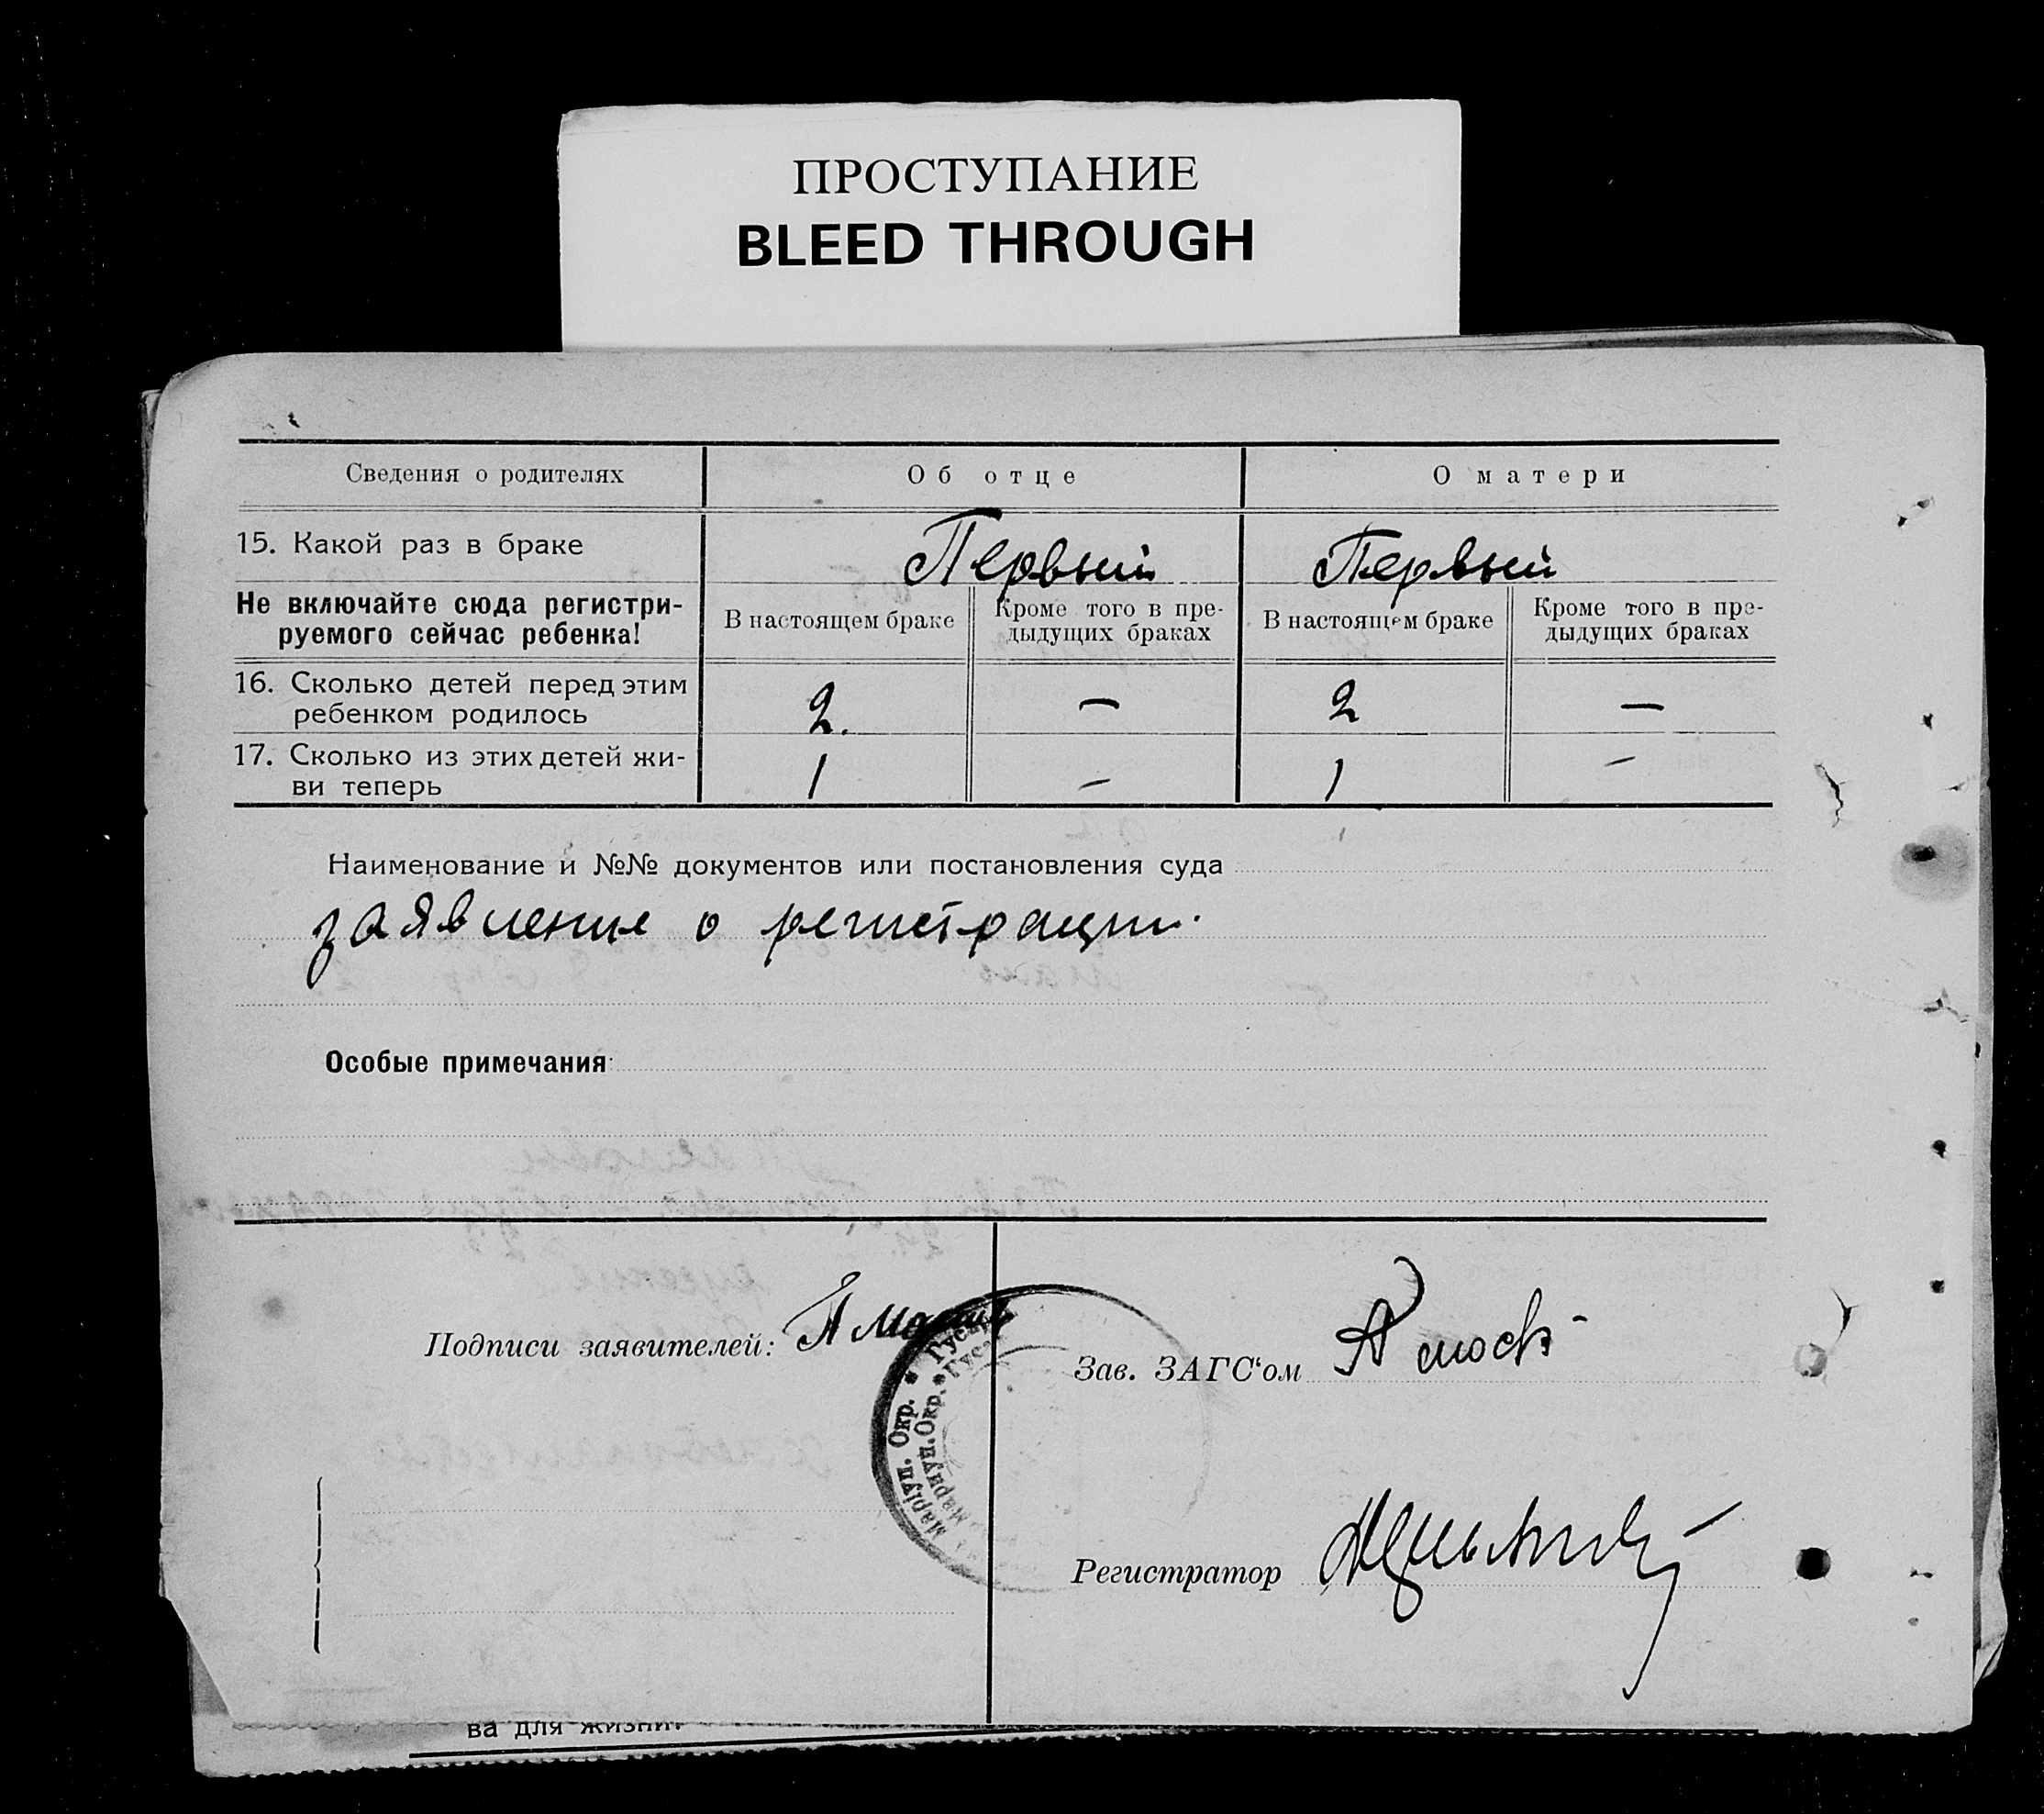 ПРОСТУПАНИЕ
BLEED THROUGH
Сведения о родителях Об отце О матери
15. Какой раз в браке Первый Первый
Не включайте сюда регистри-
руемого сейчас ребенка!
В настоящем браке Кроме того в пре-
дыдущих браках
В настоящем браке Кроме того в пре-
дыдущих браках
16. Сколько детей перед этим
ребенком родилось 2. — 2 —
17. Сколько из этих детей жи-
ви теперь 1 — 1 —
Наименование и №№ документов или постановления суда
заявление о регистрации.
Особые примечания
Подписи заявителей:
Мариуп. Окр. * Гус
Мариуп. Окр. * Гус
Зав. ЗАГС‘ом
Регистратор
ва для жизни.